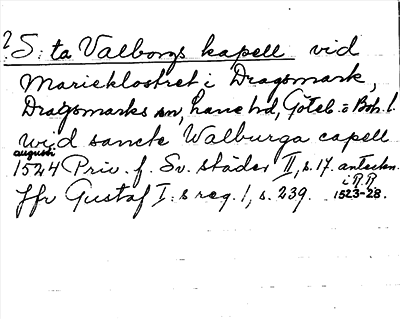 ? S:ta Valborgs kapell vid
Marieklostret i Dragsmark,
Dragsmarks sn, Lane hd, Göteb. o Boh. l.
wid sancte Walburga capell
augusti
1524 Priv. f. Sv. städer II, s. 17. anteckn.
i R. R.
Jfr Gustaf I:s reg. 1, s. 239. 1523-28.